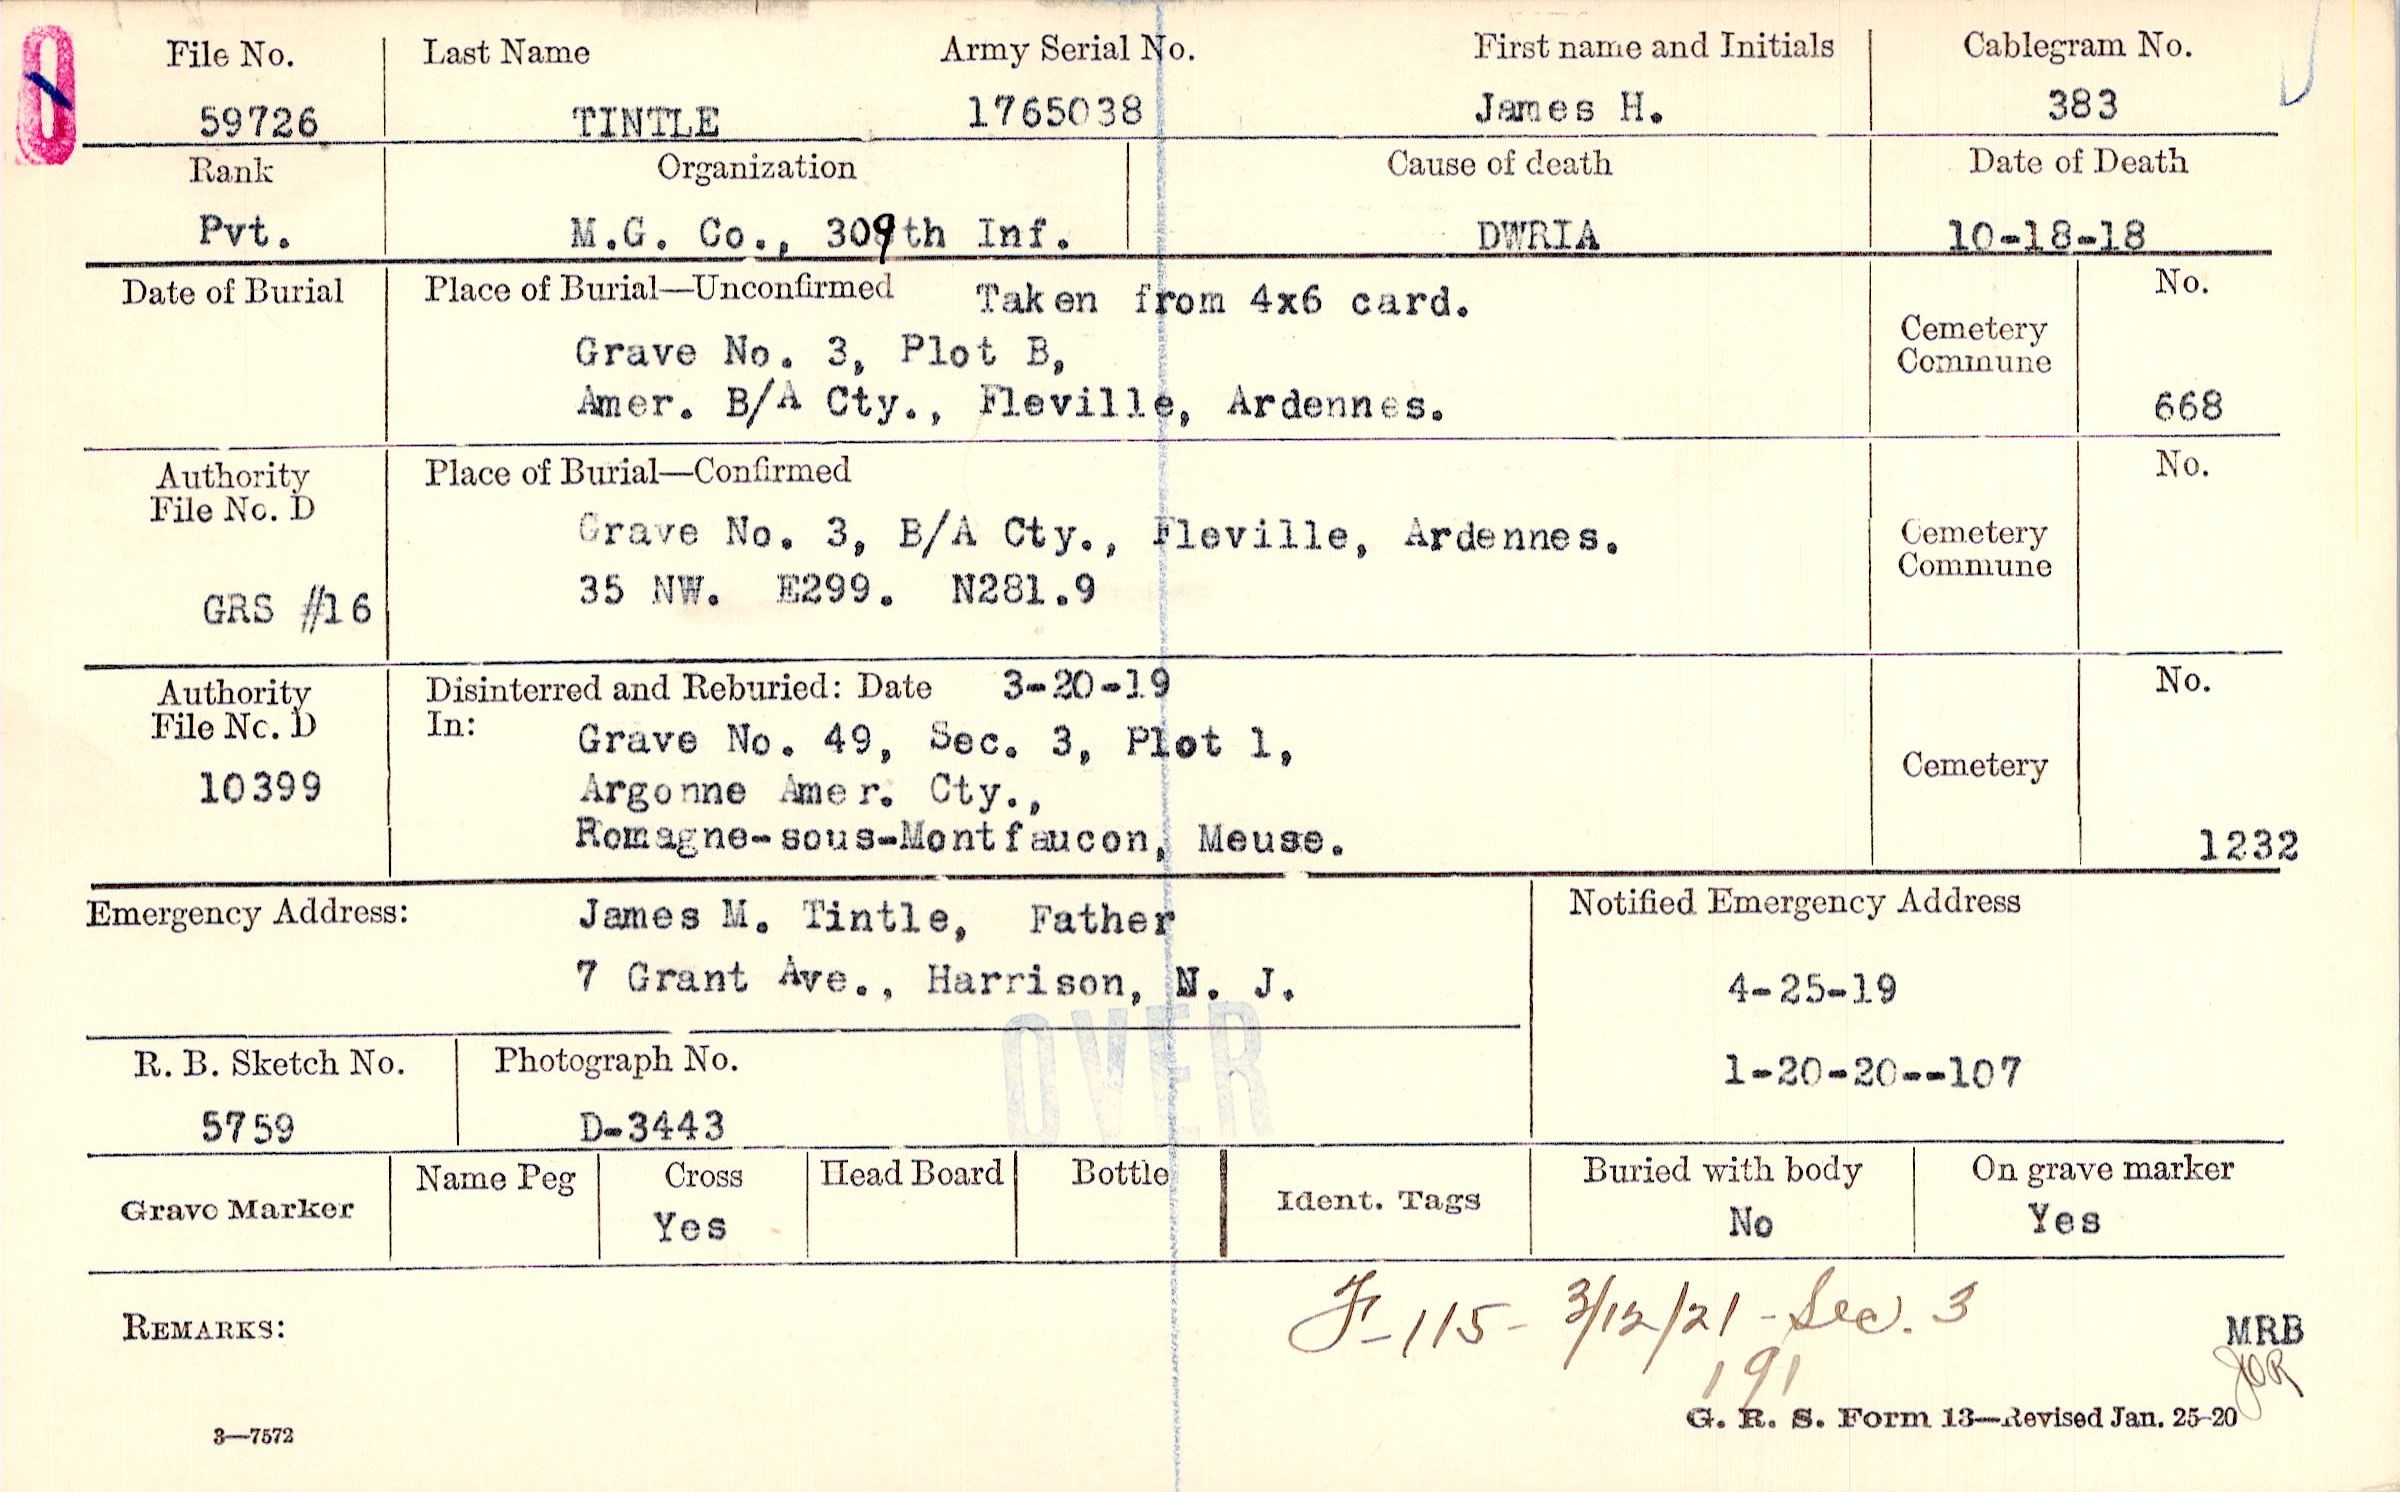 File No. Last Name Army Serial No. First name and Initials Cablegram No.
59726 TINTLE 1765038 James H. 383
Rank Organization Cause of death Date of Death
Pvt. M.G. Co., 309th Inf. DWRIA 10-18-18
Date of Burial Place of Burial—Unconfirmed Taken from 4x6 card. No.
Grave No. 3, Plot B, Cemetery
Commune
Amer. B/A Cty., Fleville, Ardennes. 668
Authority Place of Burial—Confirmed No.
File No. D
Grave No. 3, B/A Cty., Fleville, Ardennes. Cemetery
Commune
GRS #16 35 NW. E299. N281.9
Authority Disinterred and Reburied: Date 3-20-19 No.
File No. D In: Grave No. 49, Sec. 3, Plot 1,
10399 Argonne Amer. Cty., Cemetery
Romagne-sous-Montfaucon, Meuse. 1232
Emergency Address: James M. Tintle, Father Notified Emergency Address
7 Grant Ave., Harrison, N. J. 4-25-19
OVER
R. B. Sketch No. Photograph No. 1-20-20--107
5759 D-3443
Grave Marker Name Peg Cross Head Board Bottle Ident. Tags Buried with body On grave marker
Yes No Yes
REMARKS: F-115- 3/12/21 - Sec. 3 MRB
191 JOR
3—7572 G. R. S. Form 13—Revised Jan. 25-20